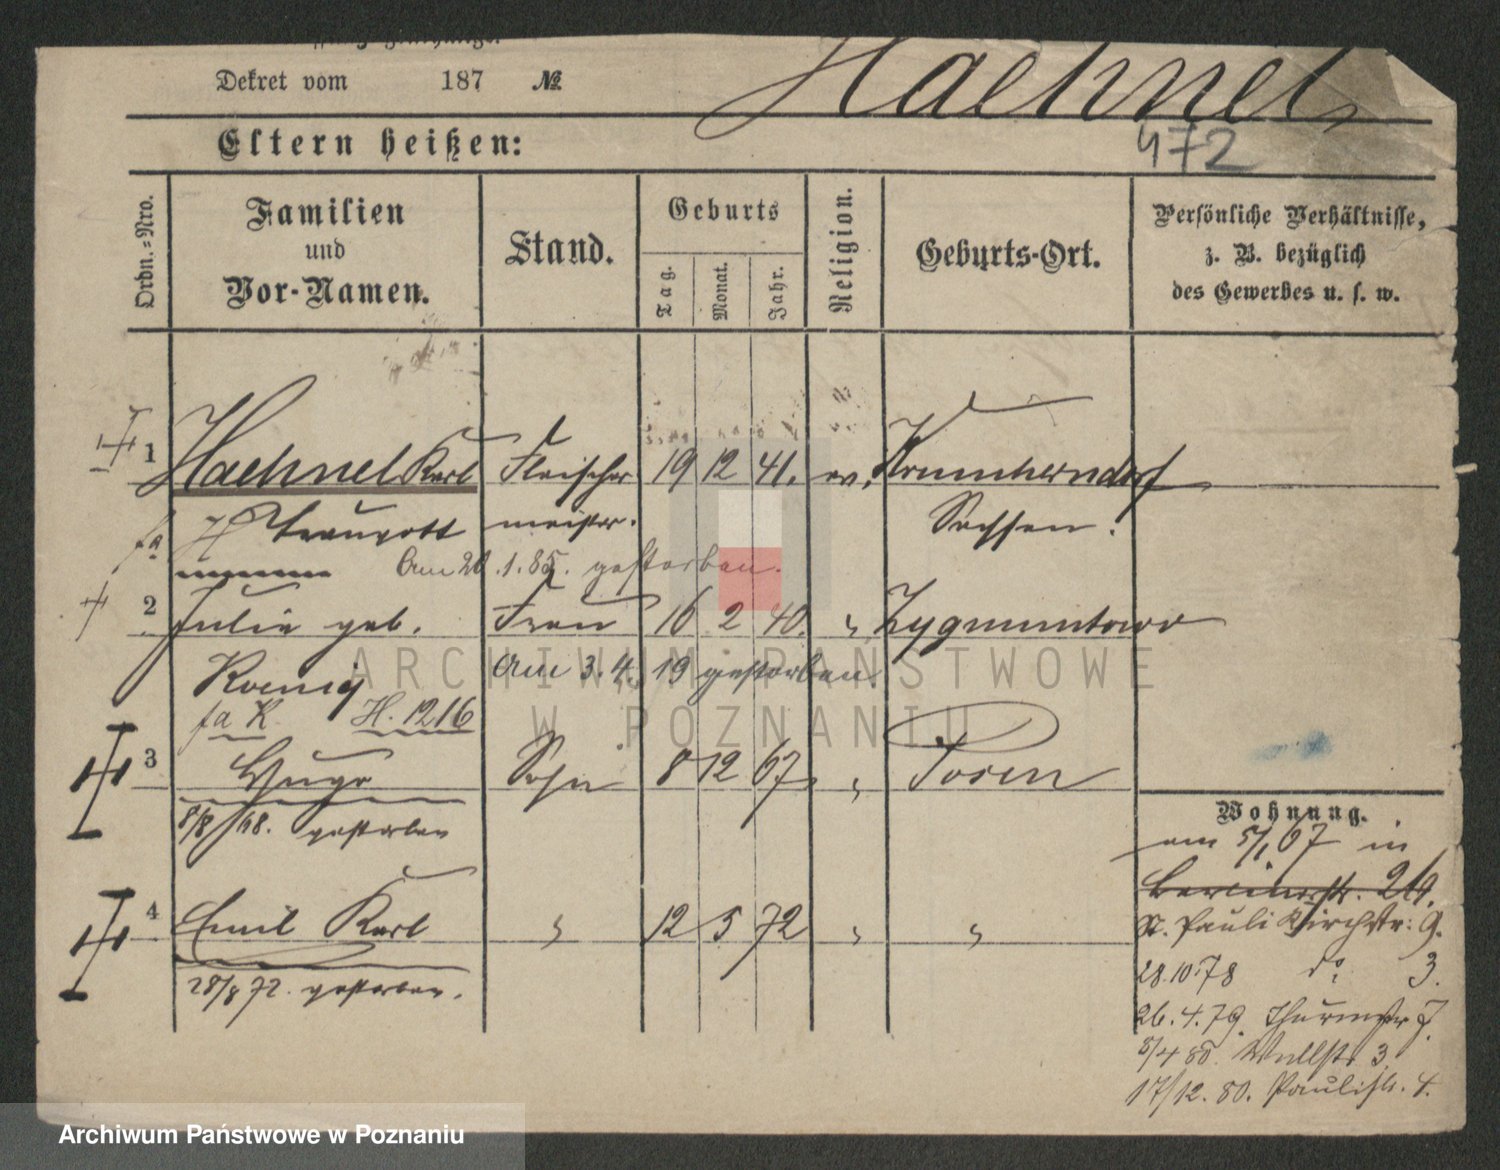 Dekret vom 187 №
Haehnel
472
Eltern heißen:
Ordn.-Nro.
Familien
und
Vor-Namen.
Stand.
Geburts
Tag.
Monat.
Jahr.
Religion.
Geburts-Ort.
Persönliche Verhältnisse,
z. B. bezüglich
des Gewerbes u. s. w.
1 Haehnel Karl Fleischer 19 12 41. ev. Krumherndorf
Traugott meister. Sachsen.
Am 20.1.85. gestorben.
2 Julie geb. Frau 16 2 40. " Zygmuntowo
Koenig Am 3.4.19 gestorben.
fa K. H. 1216
3 Hugo Sohn 8 12 67 " Posen
8/8 68. gestorben
4 Emil Karl " 12 5 72 " "
28/8 72. gestorben.
Wohnung.
am 5/1 67 in
Berlinerstr. 26.
St. Pauli Kirchstr: 9.
28.10.78 do 3.
26.4.79. Thurmstr 7.
5/4 80. Wallstr 3.
17/12.80. Paulistr. 4.
ARCHIWUM PAŃSTWOWE
W POZNANIU
Archiwum Państwowe w Poznaniu